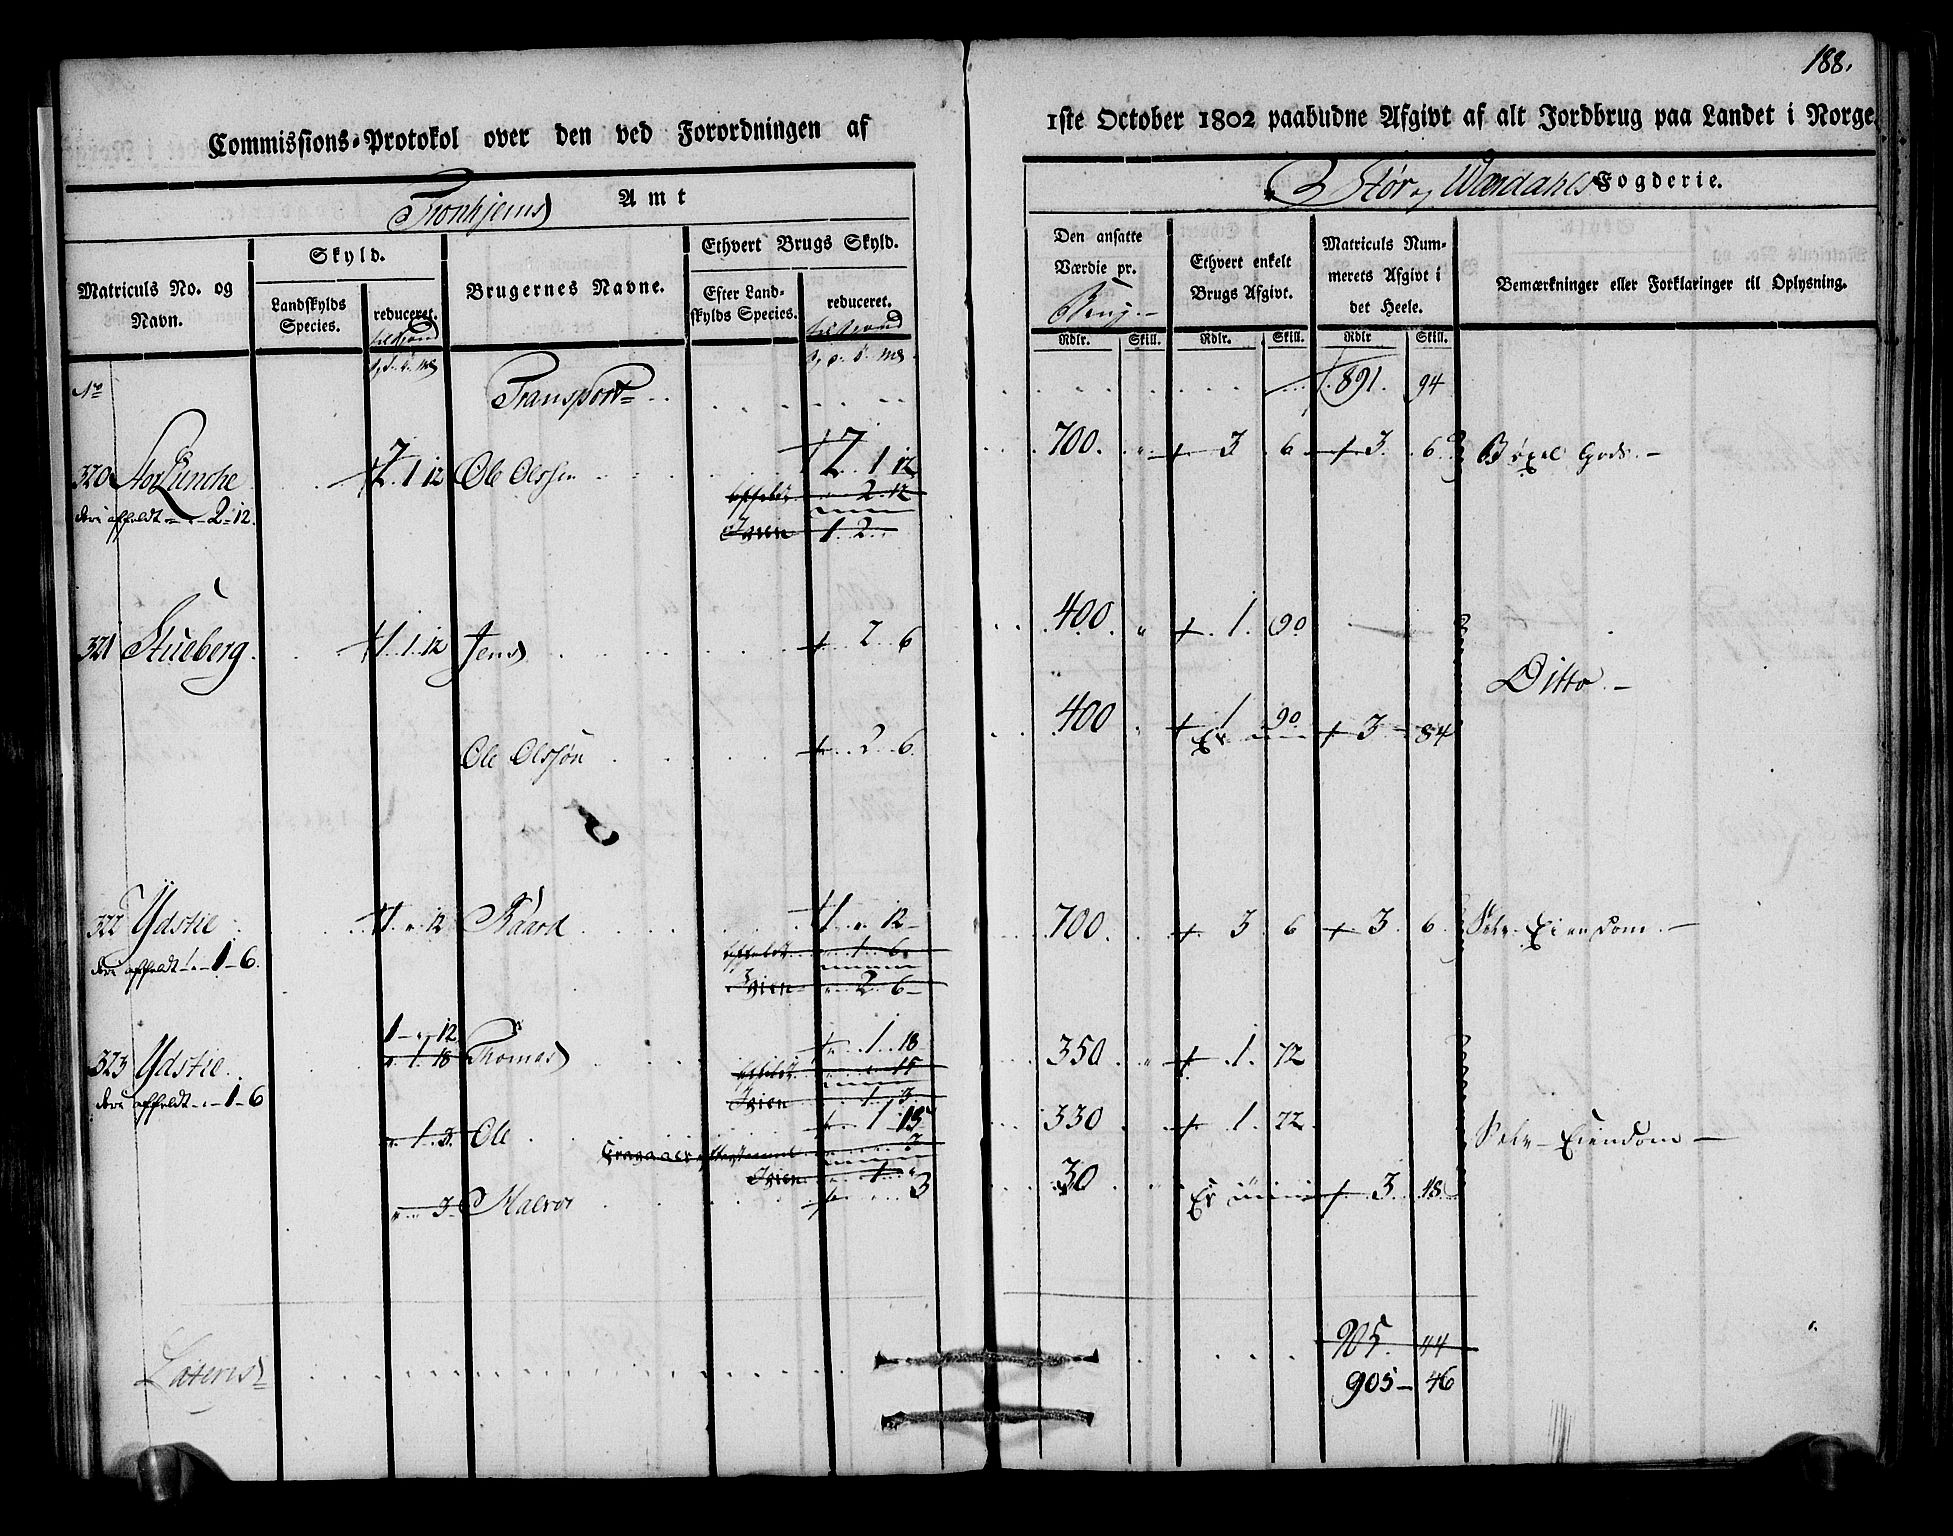 188.
Commissions-Protokol over den ved Forordningen af
1ste October 1802 paabudne Afgivt af alt Jordbrug paa Landet i Norge
Tronhjems Amt
Stør og Wærdahls Fogderie.
Matriculs No. og Navn.
Skyld.
Landskylds Species.
reduceret.
Brugernes Navne.
Ethvert Brugs Skyld.
Efter Landskylds Species.
reduceret.
Den ansatte Værdie pr. Brug.
Rdlr. Skill.
Ethvert enkelt Brugs Afgivt.
Rdlr. Skill.
Matriculs Nummerets Afgivt i det Heele.
Rdlr Skill.
Bemærkninger eller Forklaringer til Oplysning.
No
Transport 891. 94
320 2. 1 12 Ole Olssen 2 1 12 700. 3 6 3. 6 Bøxel Gods.
2 12
2-12.
1 2
321 Stueberg. 1. 1. 12 Jens 2 6 400. 1. 90
Ditto.
Ole Olssøn 2 6 400 1 90 3 84
322 Ydstie 1 12 Baard 1 12 700 3 6 3 6 Selv-Eiendom.
1-6. 1 6
2 6
1 12
323 Ydstie. 1 18 Thomas 1 18 350 1. 72
1-6 15
1 3
1 3. Ole 1 15 330 1. 72 Selv-Eiendom
3 3 30 3 48
Lateris 905. 44
905 46